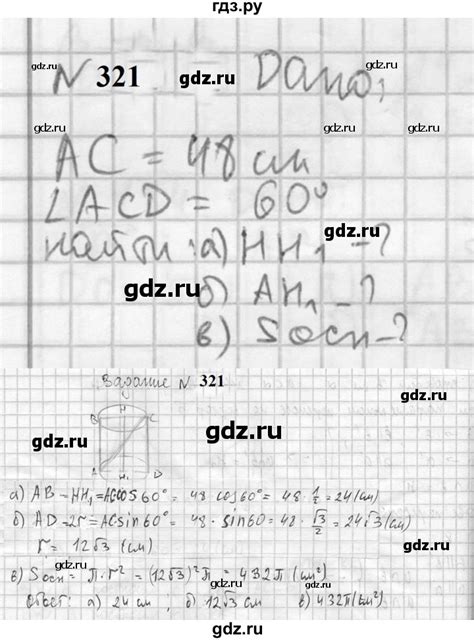 гдз.ру
N 321 gdz.ru Дано,
gdz.ru gdz.ru
gdz.ru
AC = 48 см
∠ACD = 60°
gdz.ru gdz.ru
найти: а) HH₁ - ?
gdz.ru
б) AH₁ - ?
gdz.ru
в) Sосн - ?
Задание N 321
gdz.ru
H
B C
gdz.ru gdz.ru
gdz.ru
A H₁ D
а) AB = HH₁ = AC cos 60° = 48 cos 60° = 48 · 1/2 = 24 (см)
б) AD = 2r = AC sin 60° = 48 · sin 60 = 48 · √3/2 = 24√3 (см)
r = 12√3 (см)
gdz.ru
в) Sосн = π · r² = (12√3)²π = 432π (см²)
Ответ: а) 24 см, б) 12√3 см в) 432π (см²)
gdz.ru